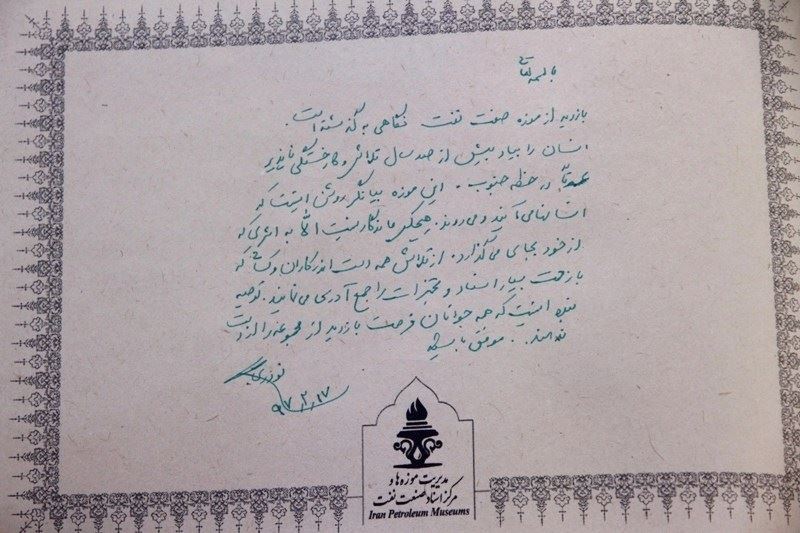 باسمه تعالی
بازدید از موزه صنعت نفت نگاهی به گذشته است.
انسان را بیاد بیش از صد سال تلاش و خستگی ناپذیر
در خطه جنوب. این موزه بیانگر روشن اینست که
انسانها می آیند و می روند. هیچکس ماندگار نیست الا به اثری که
از خود بجای می گذارد. از تلاش همه دست اندرکاران و کسانی که
با زحمت بسیار اسناد و تجهیزات را جمع آوری می نمایند. توصیه
بنده اینست که همه جوانان فرصت بازدید از مجموعه را از دست
ندهند. موفق باشید
۹۷,۳,۱۷
مدیریت موزه ها و
مرکز اسناد صنعت نفت
Iran Petroleum Museums